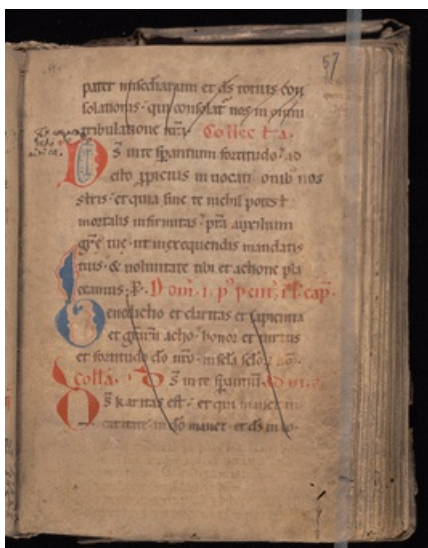 57
pater miserichiarum et ds totius con
solationis · qui consolat nos in omni
tribulatione nr̄a · Collecta ·
DS in te sperantium fortitudo · ad
esto propicius invocati onib nos
stris · et quia sine te nichil potest
mortalis infirmitas · pr̄a auxilium
gr̄e tue · ut in exequendis mandatis
tuis · & voluntate tibi et actione pla
ceamus · P · Dom · i · p' pent · cap ·
Benedictio et claritas et sapientia
et gr̄arū actio · honor et virtus
et fortitudo do nr̄o · in scla sclor am̄ ·
Colla · DS in te sperantiū
DS karitas est · et qui manet in
caritate · in do manet · et ds in eo ·